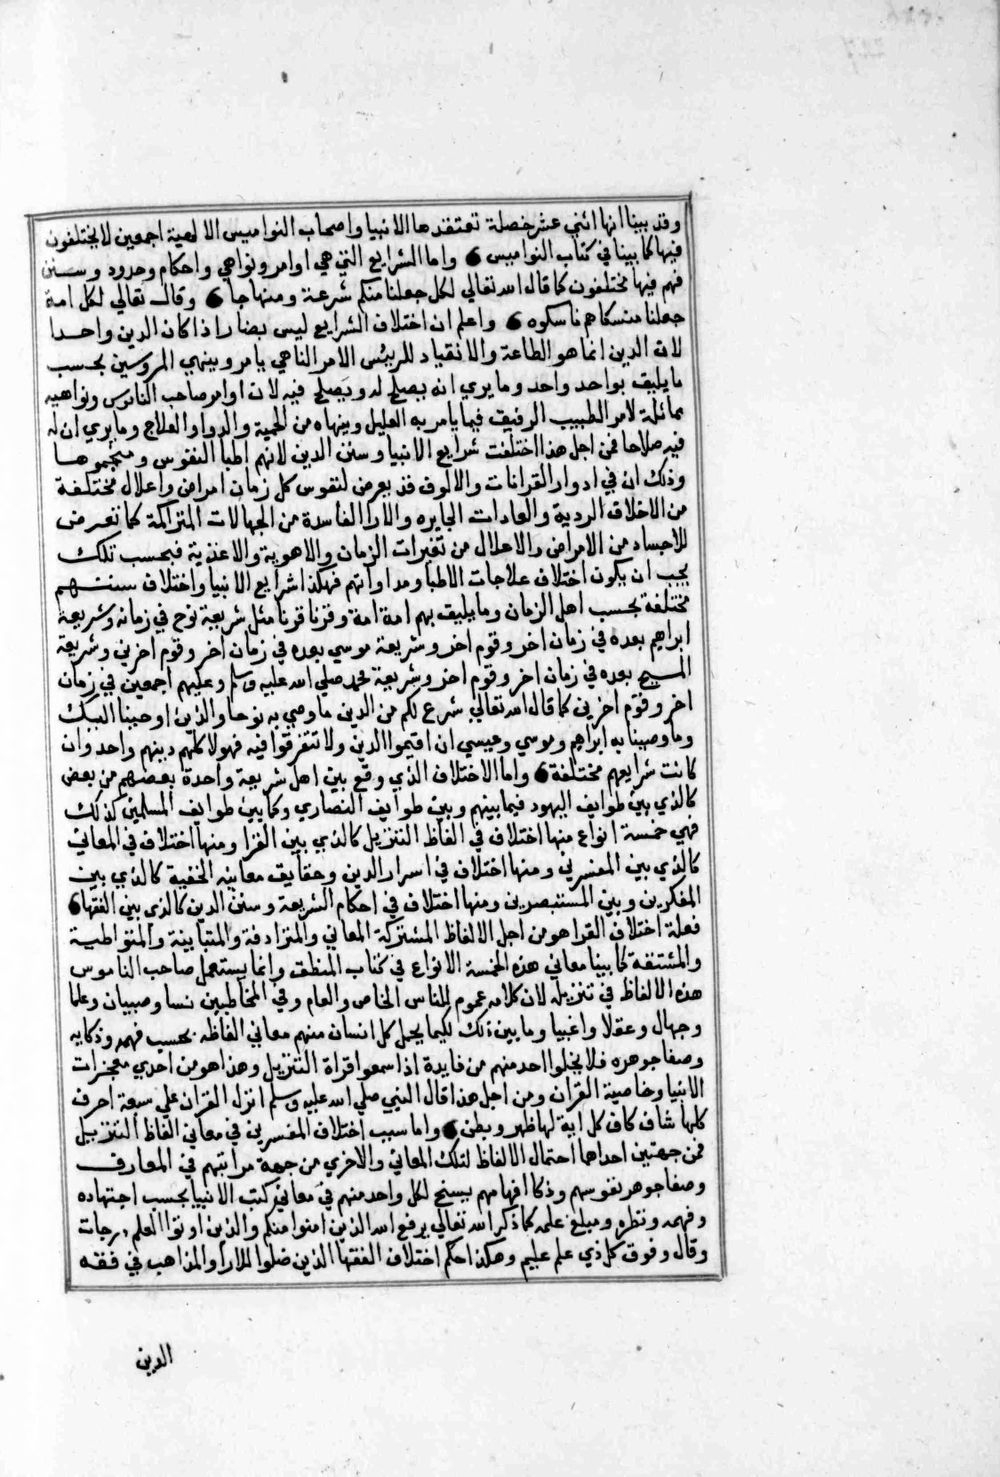 وقد بينا انها اثني عشر خصلة تعتقدها الانبيا واصحاب النواميس الالهية اجمعين لا يختلفون
فيها كما بينا في كتاب النواميس 6 واما الشرايع التي هي اوامر ونواهي واحكام وحدود وسنن
فهم فيها مختلفون كما قال الله تعالي لكل جعلنا منكم شرعة ومنهاجا 6 وقال تعالي لكل امة
جعلنا منسكا هم ناسكوه 6 واعلم ان اختلاف الشرايع ليس بضار اذا كان الدين واحدا
لان الدين انما هو الطاعة والانقياد للرييس الامر الناهي يامر وينهي المروسين بحسب
ما يليق بواحد واحد وما يري انه يصلح له ويصلح فيه لان اوامر صاحب الناموس ونواهيه
مماثلة لامر الطبيب الرفيق فيما يامر به العليل وينهاه من الحمية والدوا والعلاج وما يري ان له
فيه صلاحا فمن اجل هذا اختلفت شرايع الانبيا وسنن الدين لانهم اطبا النفوس ومنجموها
وذلك ان في ادوار القرانات والالوف قد يعرض لنفوس كل زمان امراض واعلال مختلفة
من الاخلاق الردية والعادات الجايره والارا الفاسدة من الجهالات المتراكمة كما تعرض
للاجساد من الامراض والاعلال من تغيرات الزمان والاهوية والاغذية فبحسب تلك
يجب ان يكون اختلاف علاجات الاطبا ومداواتهم فهكذا شرايع الانبيا واختلاف سننهم
مختلفة بحسب اهل الزمان وما يليق بهم امة امة وقرنا قرنا مثل شريعة نوح في زمانه وشريعة
ابراهيم بعده في زمان اخر وقوم اخر وشريعة موسي بعده في زمان اخر وقوم اخرين وشريعة
المسيح بعده في زمان اخر وقوم اخر وشريعة محمد صلي الله عليه وسلم وعليهم اجمعين في زمان
اخر وقوم اخرين كما قال الله تعالي شرع لكم من الدين ما وصي به نوحا والذين اوحينا اليك
وما وصينا به ابراهيم وموسي وعيسي ان اقيموا الدين ولا تتفرقوا فيه فهولا كلهم دينهم واحد وان
كانت شرايعهم مختلفة 6 واما الاختلاف الذي وقع بين اهل شريعة واحدة بعضهم من بعض
كالذي بين طوايف اليهود فيما بينهم وبين طوايف النصاري وكما بين طوايف المسلمين كذلك
فهي خمسة انواع منها اختلاف في الفاظ التنزيل كالذي بين القرا ومنها اختلاف في المعاني
كالذي بين المفسرين ومنها اختلاف في اسرار الدين وحقايق معانيه الخفية كالذي بين
المفكرين وبين المستبصرين ومنها اختلاف في احكام الشريعة وسنن الدين كالذي بين الفقها 6
فعلة اختلاف القرا هو من اجل الالفاظ المشتركة المعاني والمترادفة والمتباينة والمتواطية
والمشتقة كما بينا معاني هذه الخمسة الانواع في كتاب المنطق وانما يستعمل صاحب الناموس
هذه الالفاظ في تنزيله لان كلامه عموم للناس الخاص والعام وفي المخاطبين نسا وصبيان وعلما
وجهال وعقلا واغبيا وما بين ذلك لكيما يحمل كل انسان منهم معاني الفاظه بحسب فهمه وذكايه
وصفا جوهره فلا يخلوا احد منهم من فايدة اذا سمعوا قراة التنزيل وهذا هو من احدي معجزات
الانبيا وخاصية القران ومن اجل هذا قال النبي صلي الله عليه وسلم انزل القران علي سبعة احرف
كلها شاف كاف كل اية لها ظهر وبطن 6 واما سبب اختلاف المفسرين في معاني الفاظ التنزيل
فمن جهتين احداها احتمال الالفاظ لتلك المعاني والاخري من جهة مراتبهم في المعارف
وصفا جوهر نفوسهم وذكا افهامهم يسنح لكل واحد منهم في معاني كتب الانبيا بحسب اجتهاده
وفهمه ونظره ومبلغ علمه كما ذكر الله تعالي يرفع الله الذين امنوا منكم والذين اوتوا العلم درجات
وقال وفوق كل ذي علم عليم وهكذا حكم اختلاف الفقها الذين ضلوا للارا والمذاهب في فقه
الدين